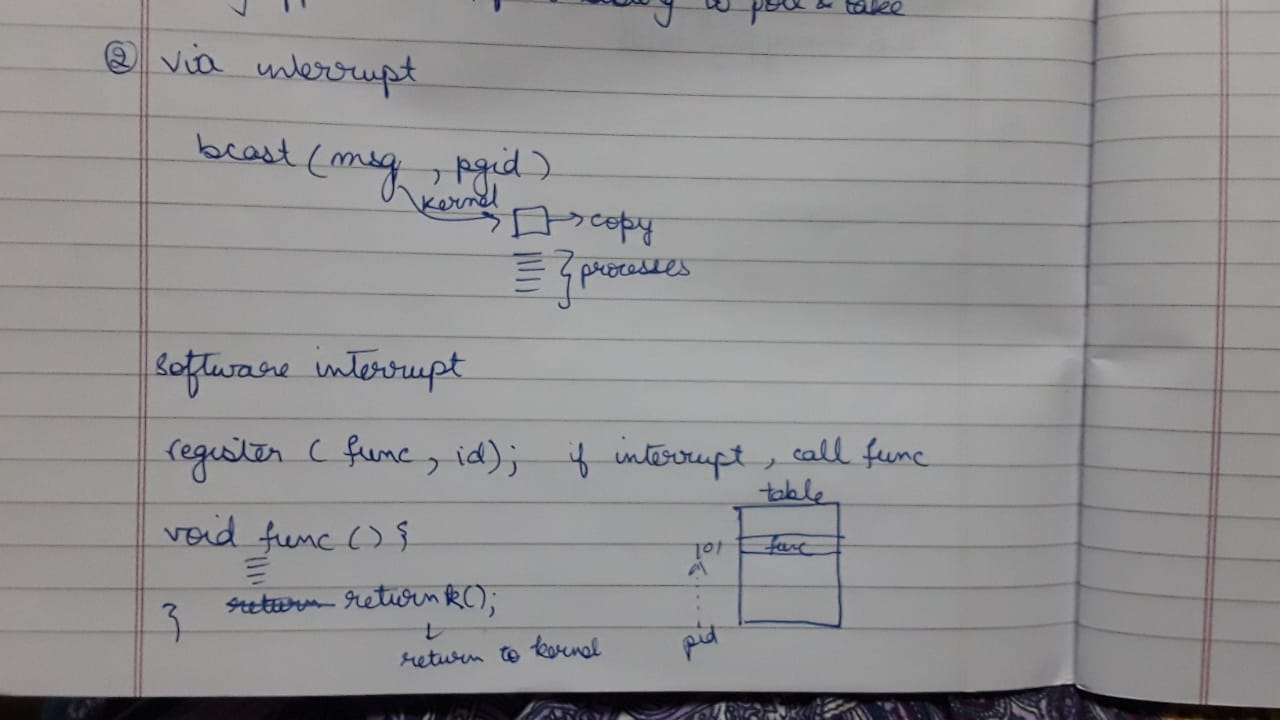 to poll & take
② via interrupt
bcast (msg, pgid)
kernel
→ copy
} processes
software interrupt
register (func, id); if interrupt, call func
table
void func () {
101 func
returnk();
}
pid
return to kernel